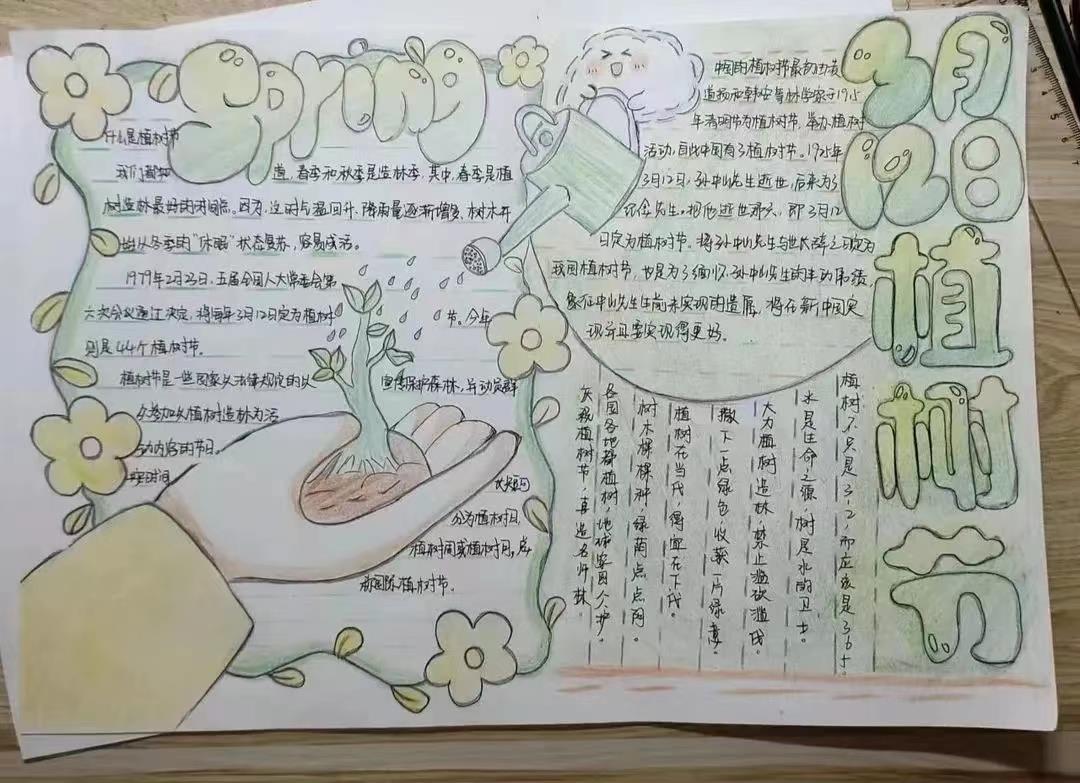 Spring
什么是植树节
我们都知道,春季和秋季是造林季,其中,春季是植
树造林最好的时间点。因为,这时气温回升,降雨量逐渐增多,树木开
始从冬季的“休眠”状态复苏,容易成活。
1979年2月23日,五届全国人大常委会第
六次会议通过决定,将每年3月12日定为植树节。今年
则是44个植树节。
植树节是一些国家以法律规定的以宣传保护森林,并动员群
众参加以植树造林为活
动内容的节日。
按时间长短可
分为植树日,
植树周或植树月,总
称国际植树节。
中国的植树节最初由凌
道扬和韩安等林学家于1915
年清明节为植树节,举办植树
活动,自此中国有了植树节。1925年
3月12日,孙中山先生逝世,后来为了
纪念先生。把他逝世那天,即3月12
日定为植树节。将孙中山先生与世长辞之日定为
我国植树节,也是为了缅怀孙中山先生的丰功伟绩,
象征中山先生生前未实现的遗愿,将在新中国实
现并且要实现得更好。
3月
12日
植
树
节
植树不只是3.12,而应该是365。
水是生命之源,树是水的卫士。
大力植树造林,禁止滥砍滥伐。
撒下一点绿色,收获一片绿意。
植树在当代,得宜在下代。
树木棵棵种,绿荫点点阔。
各国各地都植树,地球家园个个护。
庆祝植树节,喜造名师林。